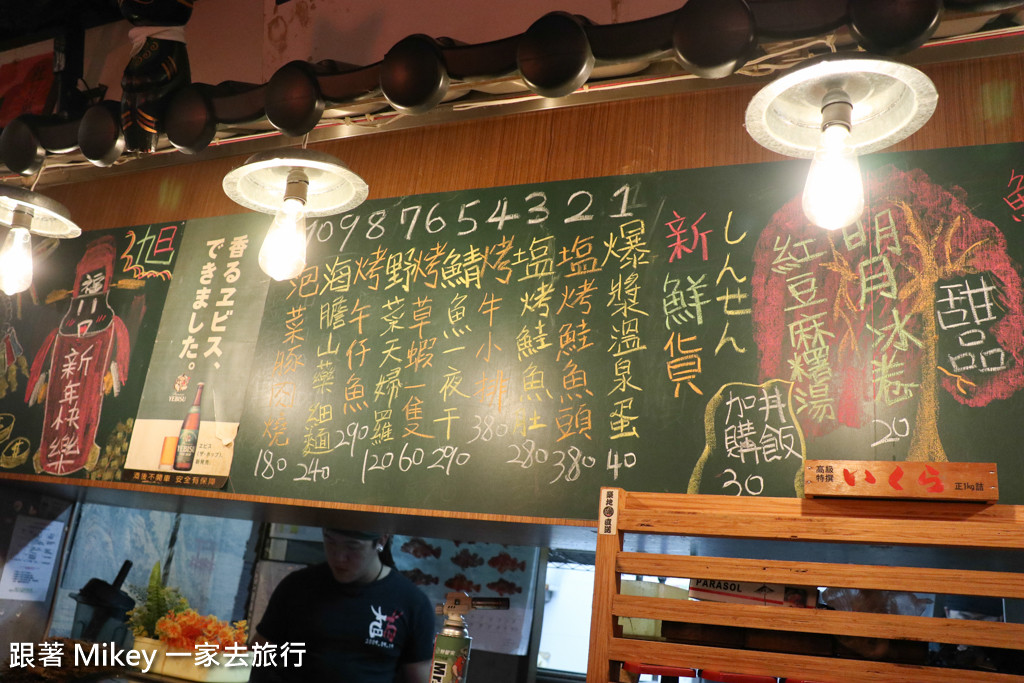 旭
福
新年快樂
香るヱビス、
できました。
YEBISU
酒後不開車 安全有保障
10 9 8 7 6 5 4 3 2 1
爆漿溫泉蛋 40
塩烤鮭魚頭 380
塩烤鮭魚肚 280
烤牛小排 380
鯖魚一夜干 290
烤草蝦一隻 60
野菜天婦羅 120
烤午仔魚 290
海膽山藥細麵 240
泡菜豚肉燒 180
新鮮貨
しんせん
加購丼飯
30
明月冰卷
20
紅豆麻糬湯
甜品
高級
特撰
いくら
正1kg詰
築地
直送
PARASOL
跟著 Mikey 一家去旅行